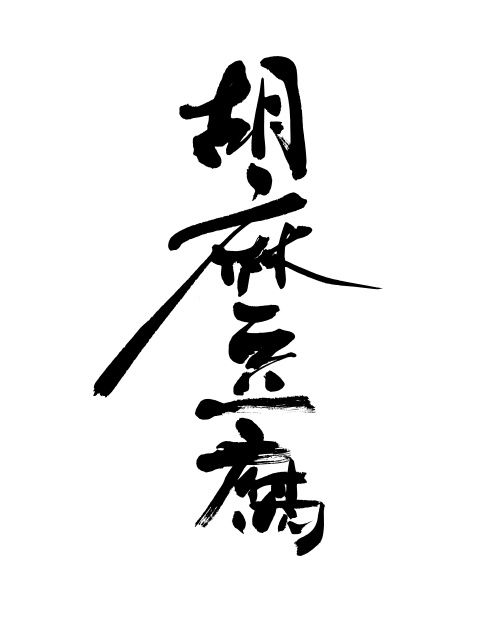 胡麻豆腐